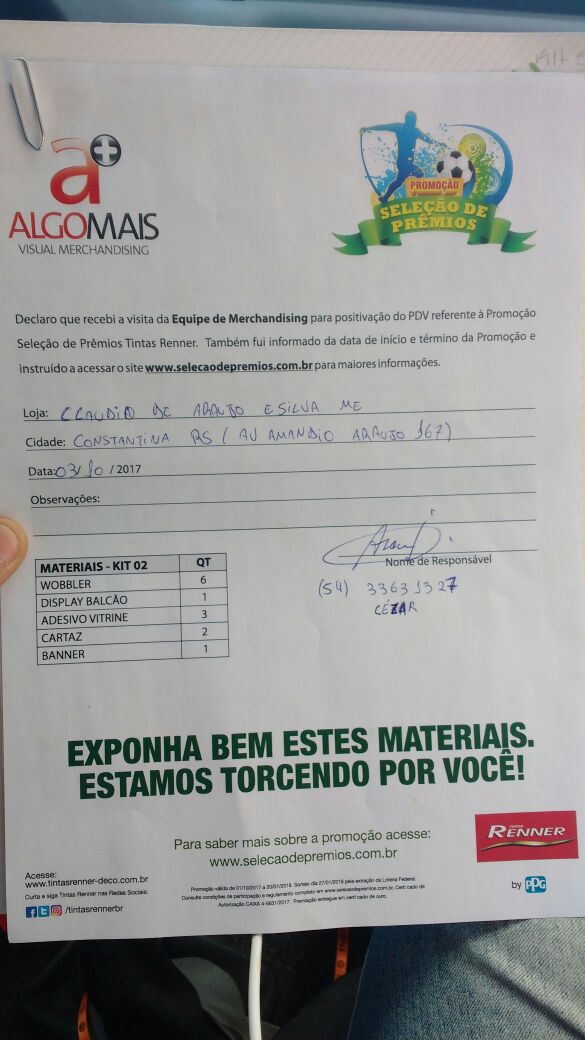 a+
ALGOMAIS
VISUAL MERCHANDISING
PROMOÇÃO
SELEÇÃO DE
PRÊMIOS
Declaro que recebi a visita da Equipe de Merchandising para positivação do PDV referente à Promoção
Seleção de Prêmios Tintas Renner. Também fui informado da data de início e término da Promoção e
instruído a acessar o site www.selecaodepremios.com.br para maiores informações.
Loja: CLAUDIO DE ARAUJO E SILVA ME
Cidade: CONSTANTINA RS ( AV AMANDIO ARAUJO 167)
Data: 03/10 / 2017
Observações:
Nome de Responsável
(54) 33631327
CÉZAR
MATERIAIS - KIT 02 QT
WOBBLER 6
DISPLAY BALCÃO 1
ADESIVO VITRINE 3
CARTAZ 2
BANNER 1
EXPONHA BEM ESTES MATERIAIS.
ESTAMOS TORCENDO POR VOCÊ!
Para saber mais sobre a promoção acesse:
www.selecaodepremios.com.br
TINTAS
RENNER
by PPG
Acesse:
www.tintasrenner-deco.com.br
Curta e siga Tintas Renner nas Redes Sociais:
/tintasrennerbr
Promoção válida de 01/10/2017 a 20/01/2018. Sorteio dia 27/01/2018 pela extração da Loteria Federal.
Consulte condições de participação e regulamento completo em www.selecaodepremios.com.br. Certi cado de
Autorização CAIXA 4-5631/2017. Premiação entregue em certi cado de ouro.